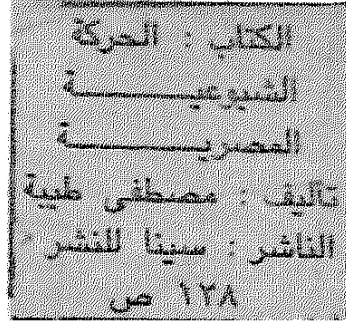 الكتاب : الحركة
الشيوعيـــــة
المصريـــــــة
تأليف : مصطفى طيبة
الناشر : سينا للنشر -
١٢٨ ص